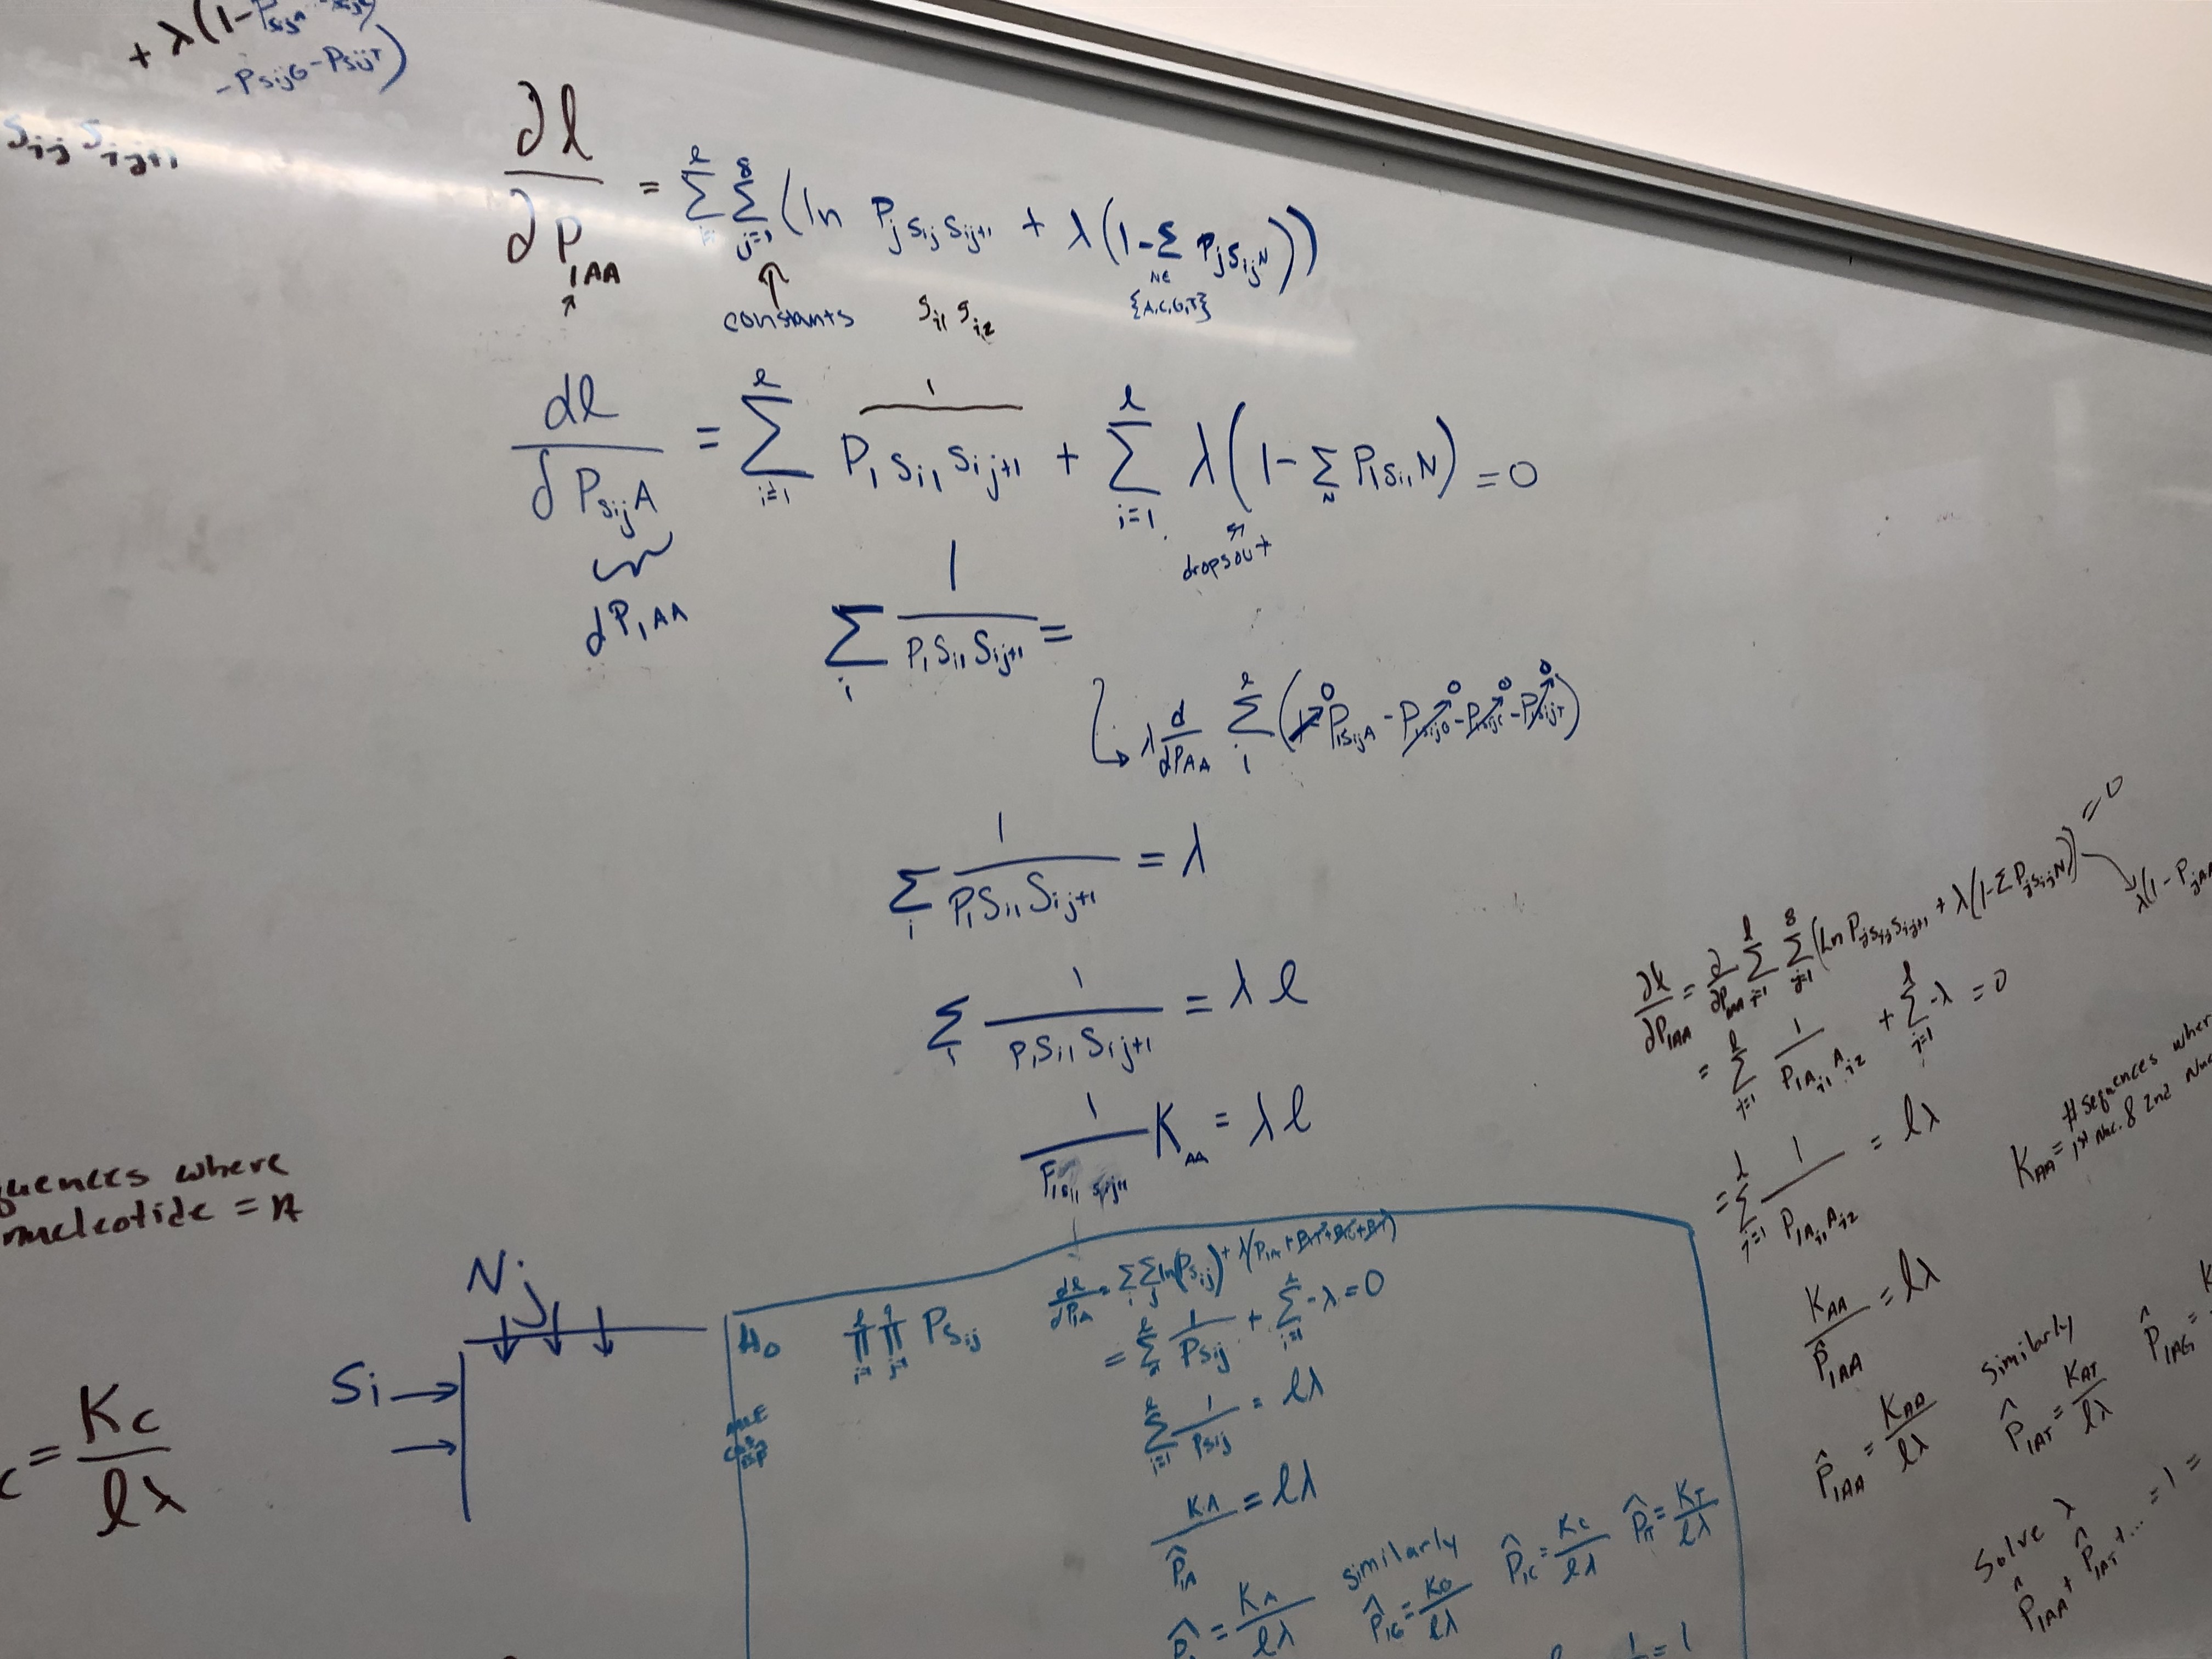 + λ(1-P
-PSijG-PSijT)
Sij Sij+1
∂l/∂P1AA = Σ Σ j=1 8 (ln PjSijSij+1 + λ(1-Σ N∈{A,C,G,T} PjSijN))
constants Si1 Si2
dl/∂PSijA = Σ i=1 l 1/P1Si1Sij+1 + Σ i=1 l λ(1-Σ N P1Si1N) = 0
drops out
dP1AA
Σ i 1/P1Si1Sij+1 =
λ d/dPAA Σ i l (1-P1SijA - P1SijG - P1SijC - P1SijT) 0 0 0 0
Σ i 1/P1Si1Sij+1 = λ
Σ i 1/P1Si1Sij+1 = λl
1/P1Si1Sij+1 KAA = λl
quences where
nucleotide = A
c = Kc/lλ
Nj
Si →
H0
Π i=1 l Π j=1 9 PSij
dl/dP1A = Σ i Σ j ln(PSij) + λ(P1A
= Σ 1/PSij + Σ i=1 l -λ = 0
Σ i=1 l 1/PSij = lλ
KA/P̂1A = lλ
P̂ = KA/lλ similarly P̂1G = KG/lλ P̂1C = KC/lλ P̂T = KT/lλ
= 1
∂l/∂P1AA = ∂/∂P1AA Σ i=1 l Σ j=1 8 (ln PjSijSij+1 + λ(1-ΣPjSijN)) = 0
λ(1-PjAA
= Σ i=1 l 1/P1Ai1Ai2 + Σ i=1 l -λ = 0
= Σ i=1 l 1/P1Ai1Ai2 = lλ
KAA = # sequences wher
1st Nuc. & 2nd Nuc
KAA/P̂1AA = lλ
P̂1AA = KAA/lλ similarly P̂1AT = KAT/lλ P̂1AG = K
Solve λ
P̂1AA + P̂1AT + ... = 1 =